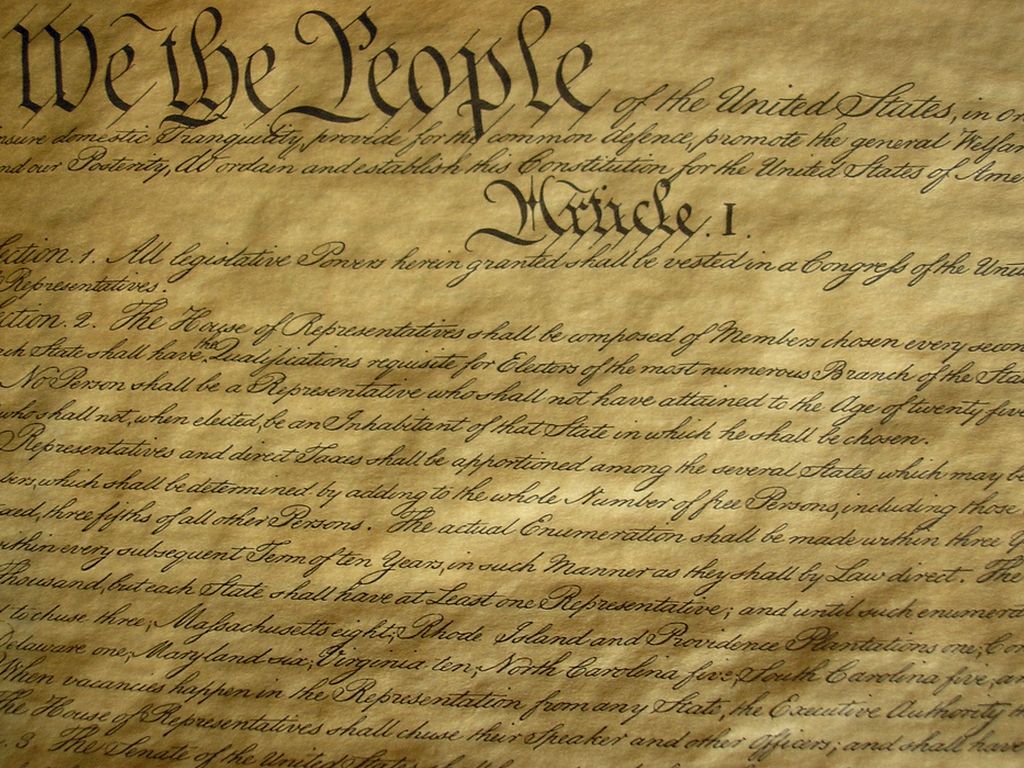 We the People of the United States, in or
nsure domestic Tranquility, provide for the common defence, promote the general Welfar
nd our Posterity, do ordain and establish this Constitution for the United States of Ame
Article. I.
ection. 1. All legislative Powers herein granted shall be vested in a Congress of the Unite
Representatives.
ection. 2. The House of Representatives shall be composed of Members chosen every secon
ach State shall have the Qualifications requisite for Electors of the most numerous Branch of the Stat
No Person shall be a Representative who shall not have attained to the Age of twenty five
who shall not, when elected, be an Inhabitant of that State in which he shall be chosen.
Representatives and direct Taxes shall be apportioned among the several States which may be
bers, which shall be determined by adding to the whole Number of free Persons, including those
axed, three fifths of all other Persons. The actual Enumeration shall be made within three Y
within every subsequent Term of ten Years, in such Manner as they shall by Law direct. The
Thousand, but each State shall have at Least one Representative; and until such enumerat
to chuse three, Massachusetts eight, Rhode Island and Providence Plantations one, Con
Delaware one, Maryland six, Virginia ten, North Carolina five, South Carolina five, an
When vacancies happen in the Representation from any State, the Executive Authority th
The House of Representatives shall chuse their Speaker and other Officers; and shall have
. 3. The Senate of the United States shall be